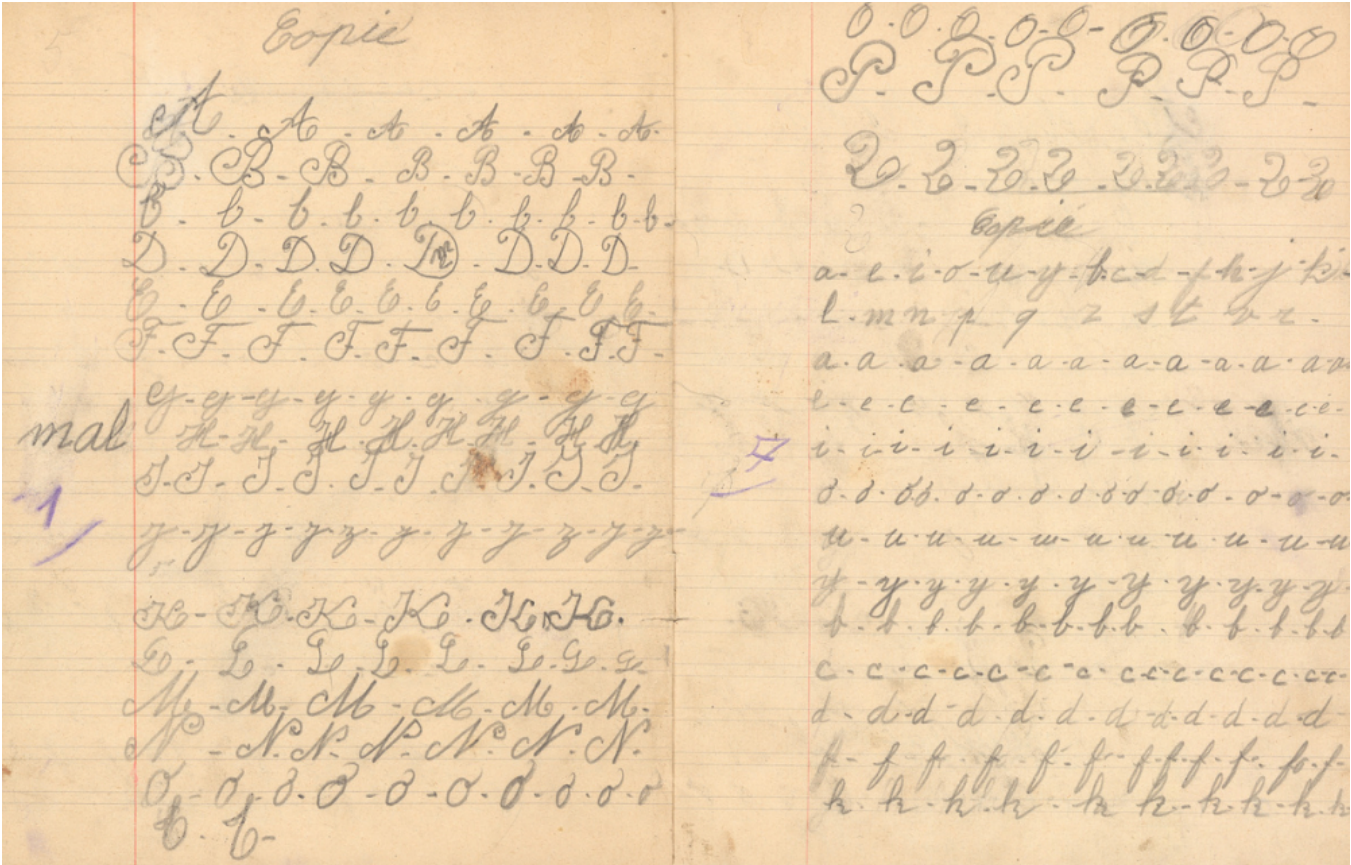 Copie
A - A - A - A - A - A - A -
B - B - B - B - B - B - B -
b - b - b - b - b - b - b - b - b - b -
D - D - D - D - D - D - D - D -
E - E - E - E - E - E - E - E - E - E -
F - F - F - F - F - F - F - F - F -
g - g - g - g - g - g - g - g - g
mal
H - H - H - H - H - H - H - H
J - J - J - J - J - J - J - J - J - J -
1
K - K - K - K - K - K -
L - L - L - L - L - L - L - L
M - M - M - M - M - M -
N - N - N - N - N - N - N -
O - o - o - O - o - o - o - o - o - o
O - O - O - O - O - O - O - O - O
P - P - P - P - P - P -
2 - 2 - 2 - 2 - 2 - 2 - 2 - 2 - 2
Copie
a - e - i - o - u - y - b - c - d - f h j k
l - m n p q z s t v r -
a - a - a - a - a - a - a - a - a - a - a - a
e - e - e - e - e - e - e - e - e - e - e - e -
i - i - i - i - i - i - i - i - i - i - i - i -
7
o - o - o o - o - o - o - o - o o - o - o - o - o - o
u - u - u - u - u - u - u - u - u - u - u
y - y - y - y - y - y - y - y - y - y - y
b - b - b - b - b - b - b - b - b - b - b - b - b
c - c - c - c - c - c - c - c - c - c - c - c - c - c
d - d - d - d - d - d - d - d - d - d - d - d
f - f - f - f - f - f - f - f - f - f - f - f -
k - k - k - k - k - k - k - k - k - k